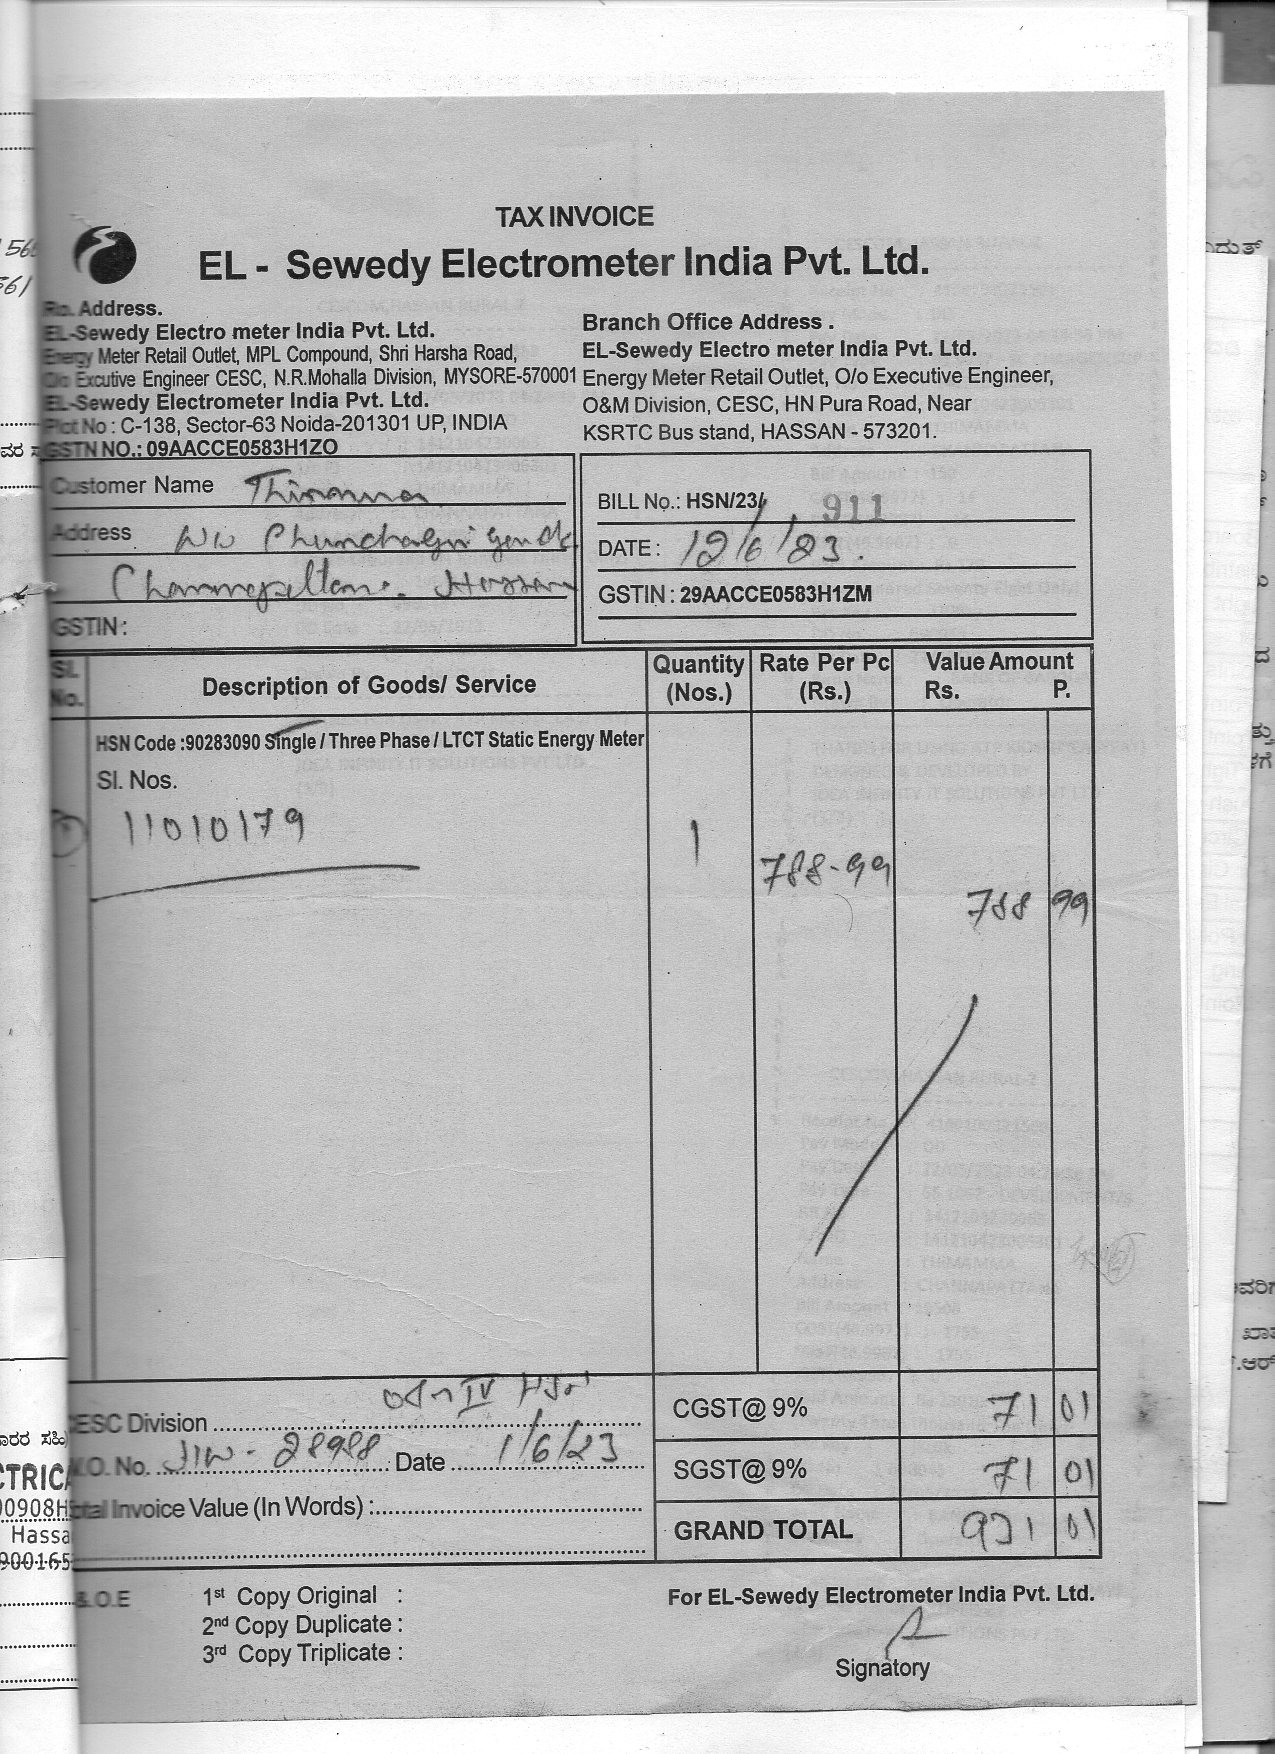 TAX INVOICE
EL - Sewedy Electrometer India Pvt. Ltd.
Address.
EL-Sewedy Electro meter India Pvt. Ltd.
Energy Meter Retail Outlet, MPL Compound, Shri Harsha Road,
Excutive Engineer CESC, N.R.Mohalla Division, MYSORE-570001
EL-Sewedy Electrometer India Pvt. Ltd.
Plot No : C-138, Sector-63 Noida-201301 UP, INDIA
GSTN NO.: 09AACCE0583H1ZO
Branch Office Address .
EL-Sewedy Electro meter India Pvt. Ltd.
Energy Meter Retail Outlet, O/o Executive Engineer,
O&M Division, CESC, HN Pura Road, Near
KSRTC Bus stand, HASSAN - 573201.
Customer Name
Address
Hassan
GSTIN :
BILL No.: HSN/23/ 911
DATE : 12/6/23.
GSTIN : 29AACCE0583H1ZM
Sl. No. Description of Goods/ Service Quantity (Nos.) Rate Per Pc (Rs.) Value Amount Rs. P.
HSN Code :90283090 Single / Three Phase / LTCT Static Energy Meter
Sl. Nos.
11010179 1 788-99 788 99
CESC Division HSN
CGST@ 9% 71 01
No. 28988 Date 1/6/23
SGST@ 9% 71 01
Total Invoice Value (In Words) :
GRAND TOTAL 931 01
&.O.E
1st Copy Original :
2nd Copy Duplicate :
3rd Copy Triplicate :
For EL-Sewedy Electrometer India Pvt. Ltd.
Signatory